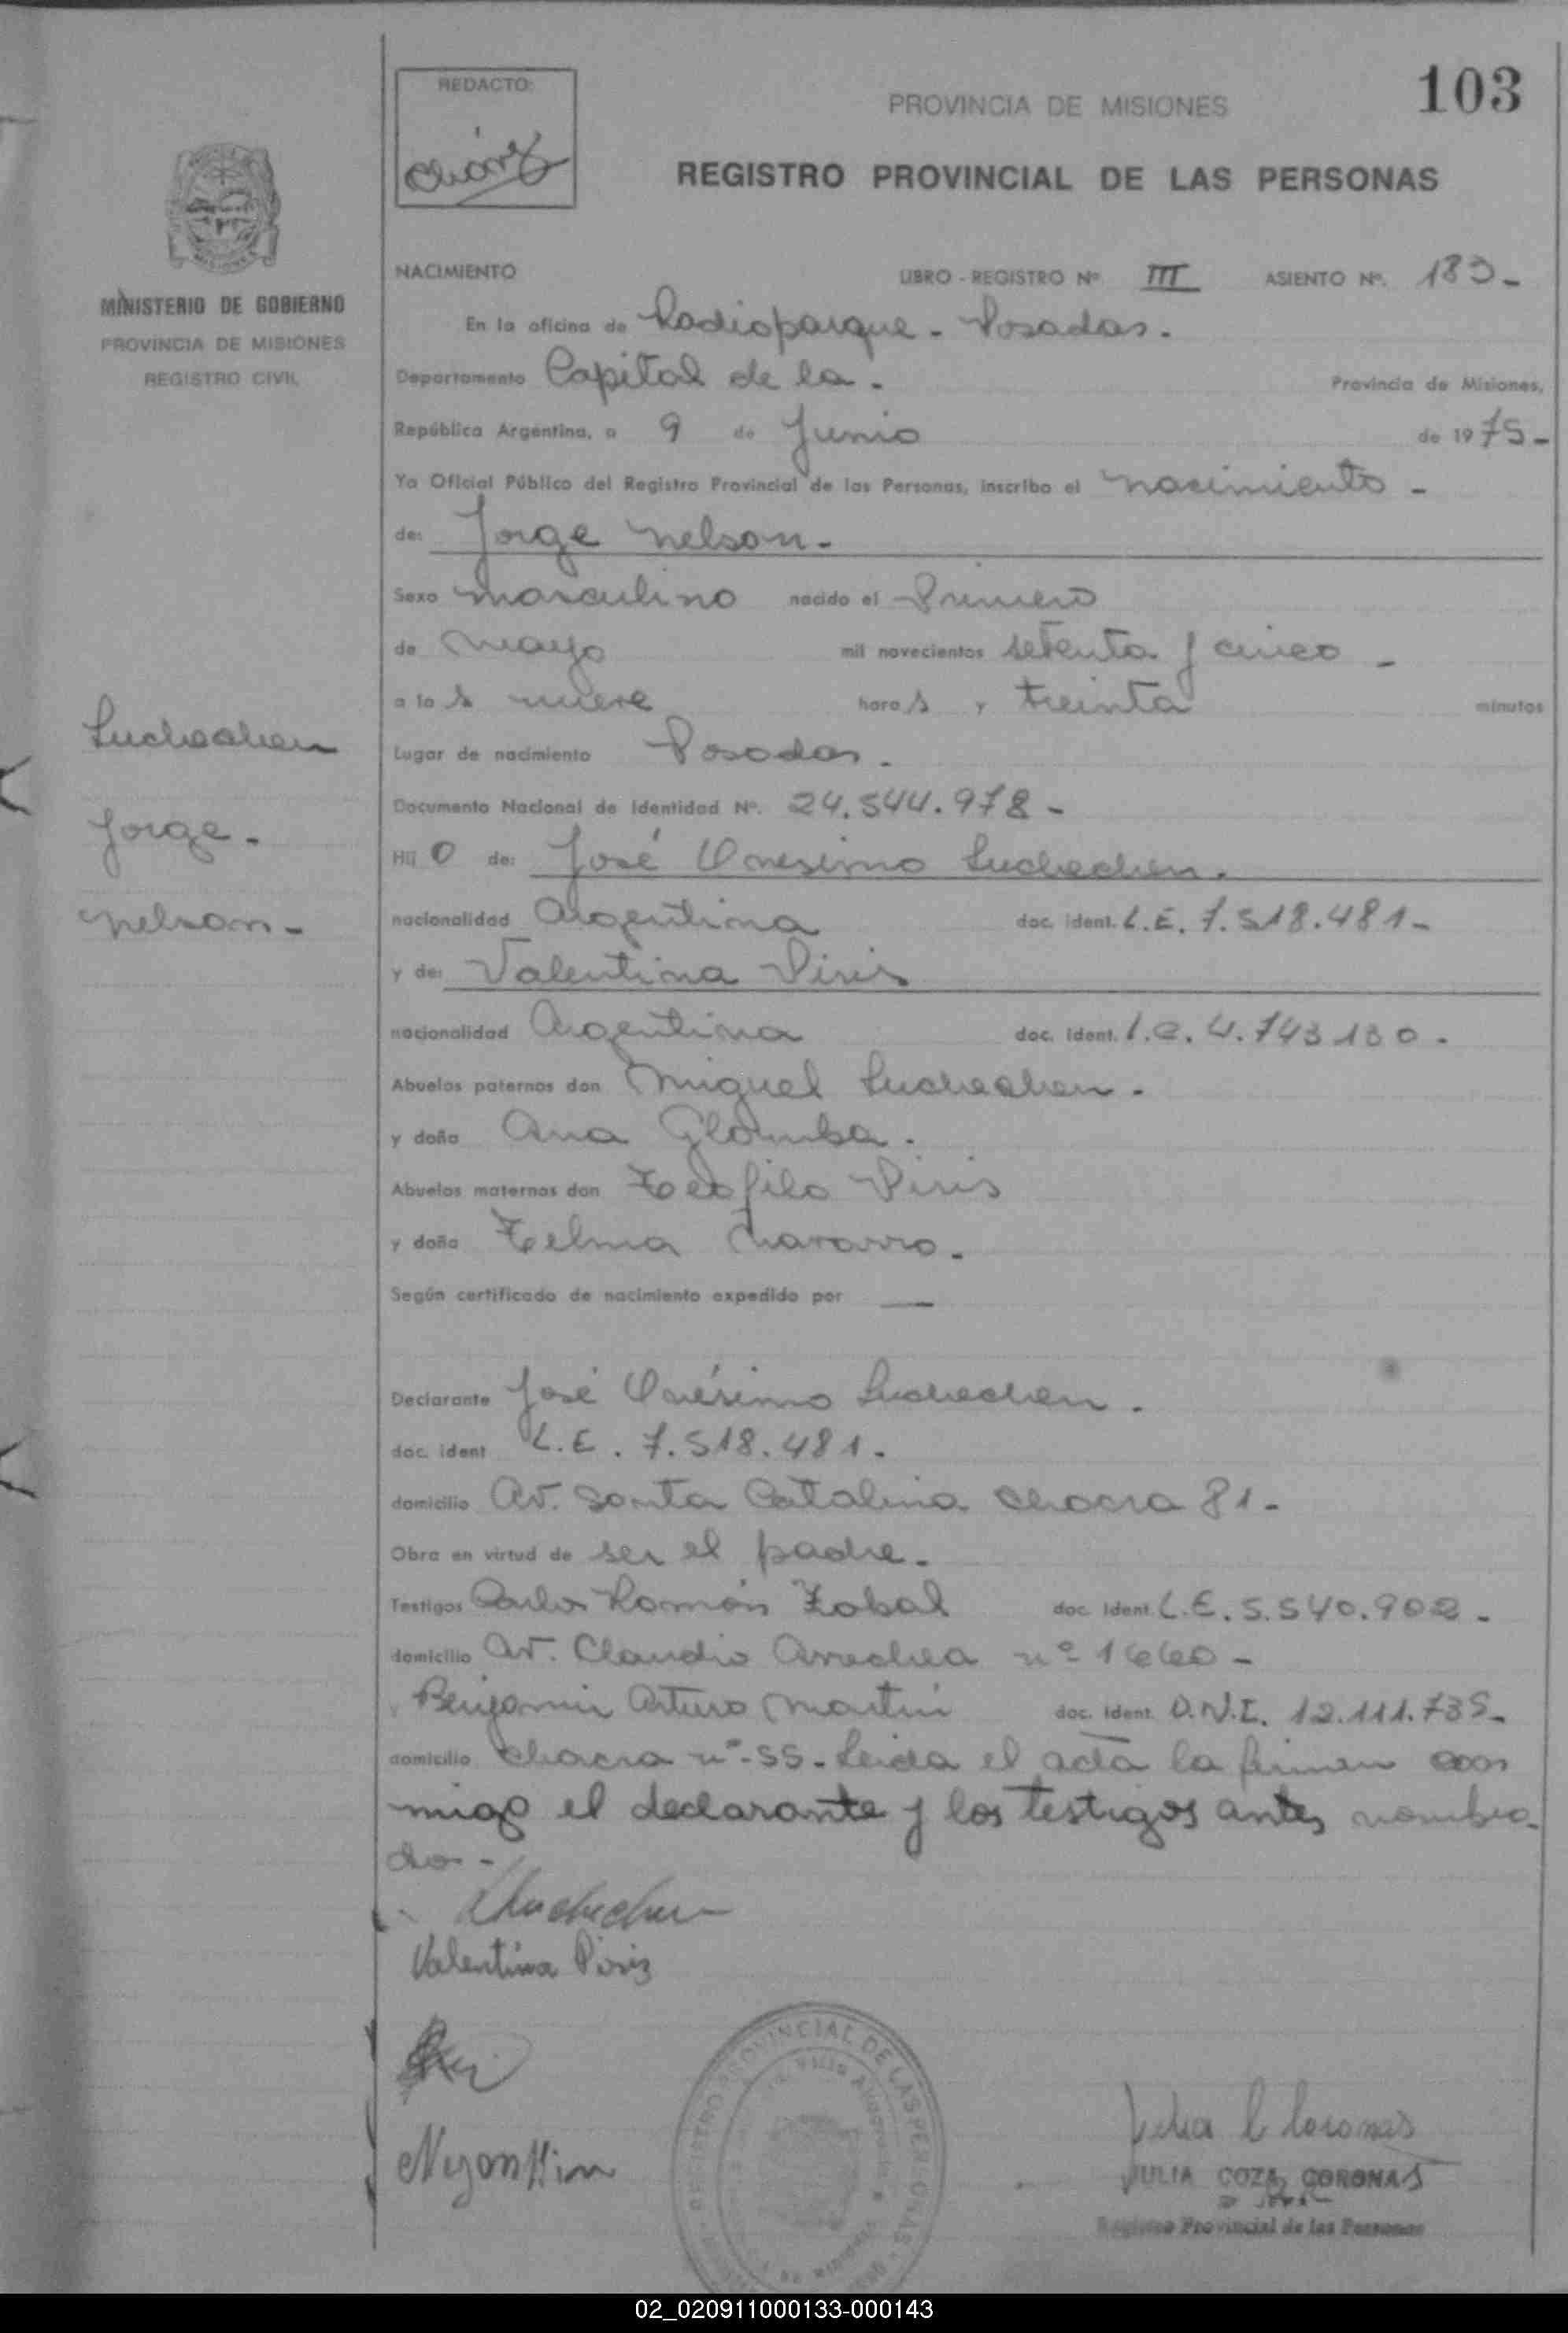 103
REDACTO:
PROVINCIA DE MISIONES
REGISTRO PROVINCIAL DE LAS PERSONAS
MINISTERIO DE GOBIERNO
PROVINCIA DE MISIONES
REGISTRO CIVIL
NACIMIENTO LIBRO - REGISTRO Nº III ASIENTO Nº. 183-
En la oficina de Radioparque - Posadas.
Departamento Capital de la. Provincia de Misiones,
República Argentina, a 9 de Junio de 1975-
Yo Oficial Público del Registro Provincial de las Personas, inscribo el nacimiento -
de: Jorge Nelson.
Sexo masculino nacido el Primero
de mayo mil novecientos setenta y cinco -
a las nueve horas y treinta minutos
Lugar de nacimiento Posadas.
Documento Nacional de Identidad Nº. 24.544.978-
Luchechen
Jorge-
Nelson-
Hijo de: José Onesimo Luchechen.
nacionalidad Argentina doc. ident. L.E. 7.518.481-
y de: Valentina Piris
nacionalidad Argentina doc. ident. l.c. 4.743130.
Abuelos paternos don Miguel Luchechen.
y doña Ana Glomba.
Abuelos maternos don Teofilo Piris
y doña Telma
Según certificado de nacimiento expedido por —
Declarante José Onésimo Luchechen.
doc. ident L.E. 7.518.481.
domicilio Av. Santa Catalina chacra 81-
Obra en virtud de ser el padre.
Testigos Carlos Román Zabal doc. ident. L.E. 5.540.902-
domicilio Av. Claudio Arrechea nº 1660-
Benjamin Arturo Martin doc. ident. D.N.I. 12.111.735-
domicilio chacra nº-55- Leida el acta la firman con
migo el declarante y los testigos antes nombra
dos-
Valentina Piris
REGISTRO PROVINCIAL DE LAS PERSONAS
JULIA COZA CORONAS
Registro Provincial de las Personas
02_020911000133-000143